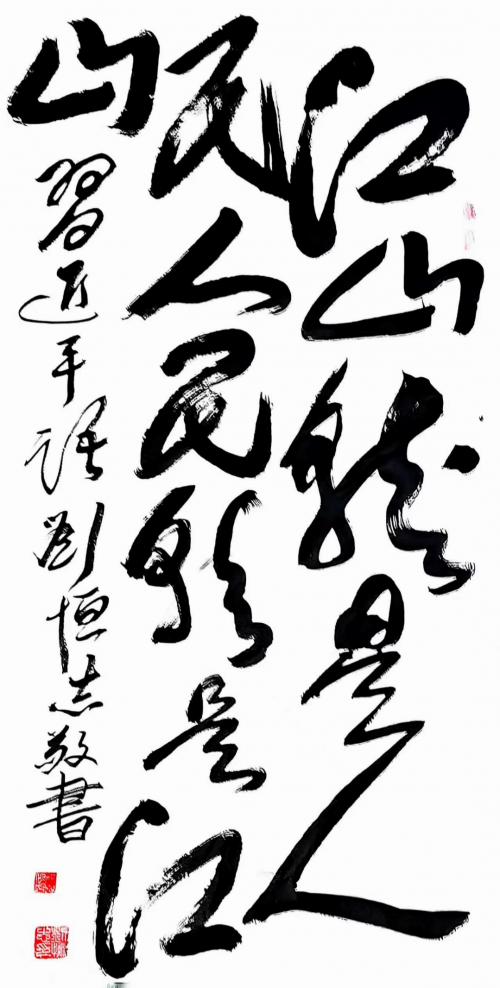 江山就是人
民人民就是江
山
習近平语劉恒志敬書